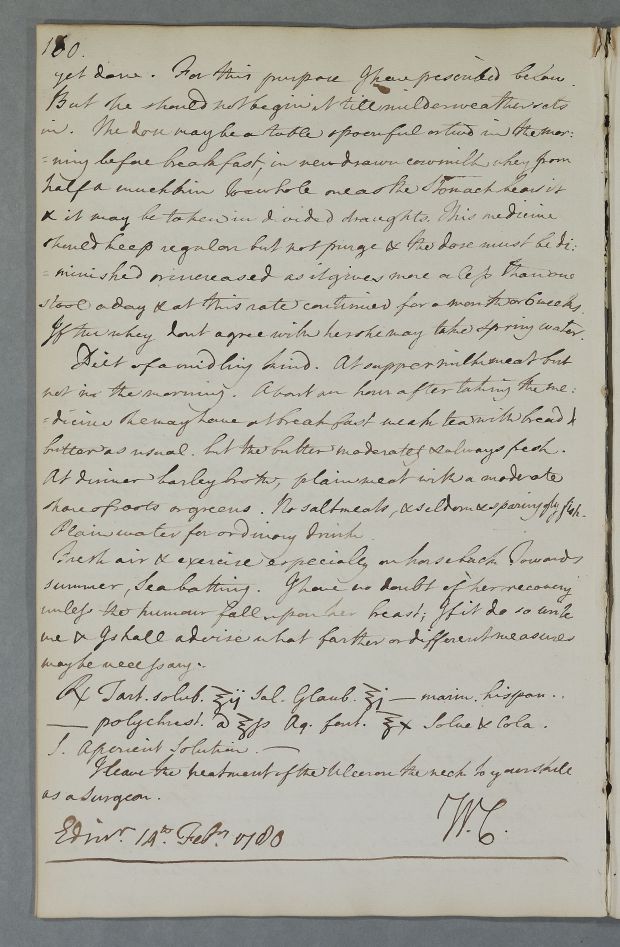 180.
yet done. For this purpose I have prescribed below.
But she should not begin it till milder weather sets
in. The dose may be a table spoonful or two in the mor:
=ning before breakfast, in new drawn cow milk whey from
half a mutchkin to a whole one as the Stomach bears it
& it may be taken in divided draughts. This medicine
should keep regular but not purge & the dose must be di:
=minished or increased as it gives more or less than one
stool a day & at this rate continued for a month or 6 weeks.
If the whey dont agree with her she may take Spring water.
Diet of a midling kind. At supper milk meat but
not in the morning. About an hour after taking the me:
=dicine she may have at breakfast weak tea with bread &
butter as usual. but the butter moderately & always fresh.
At dinner barley broth, plain meat with a moderate
share of roots or greens. No salt meats, & seldom & sparingly fish.
Plain water for ordinary drink
Fresh air & exercise especially on horseback Towards
summer, Sea bathing. I have no doubt of her recovery
unless the humour fall upon her breast; If it do so write
me & I shall advise what farther or different measures
may be necessary.
℞ Tart. solub. ℥ij Sal. Glaub. ℥j — marin. hispan..
— polychrest. a ℥ss Aq. font. ℥x Solve & Cola.
S. Aperient Solution. —
I leave the treatment of the Ulcer on the neck to your skill
as a Surgeon.
Edinr. 14th. Febry. 1780 W.C.